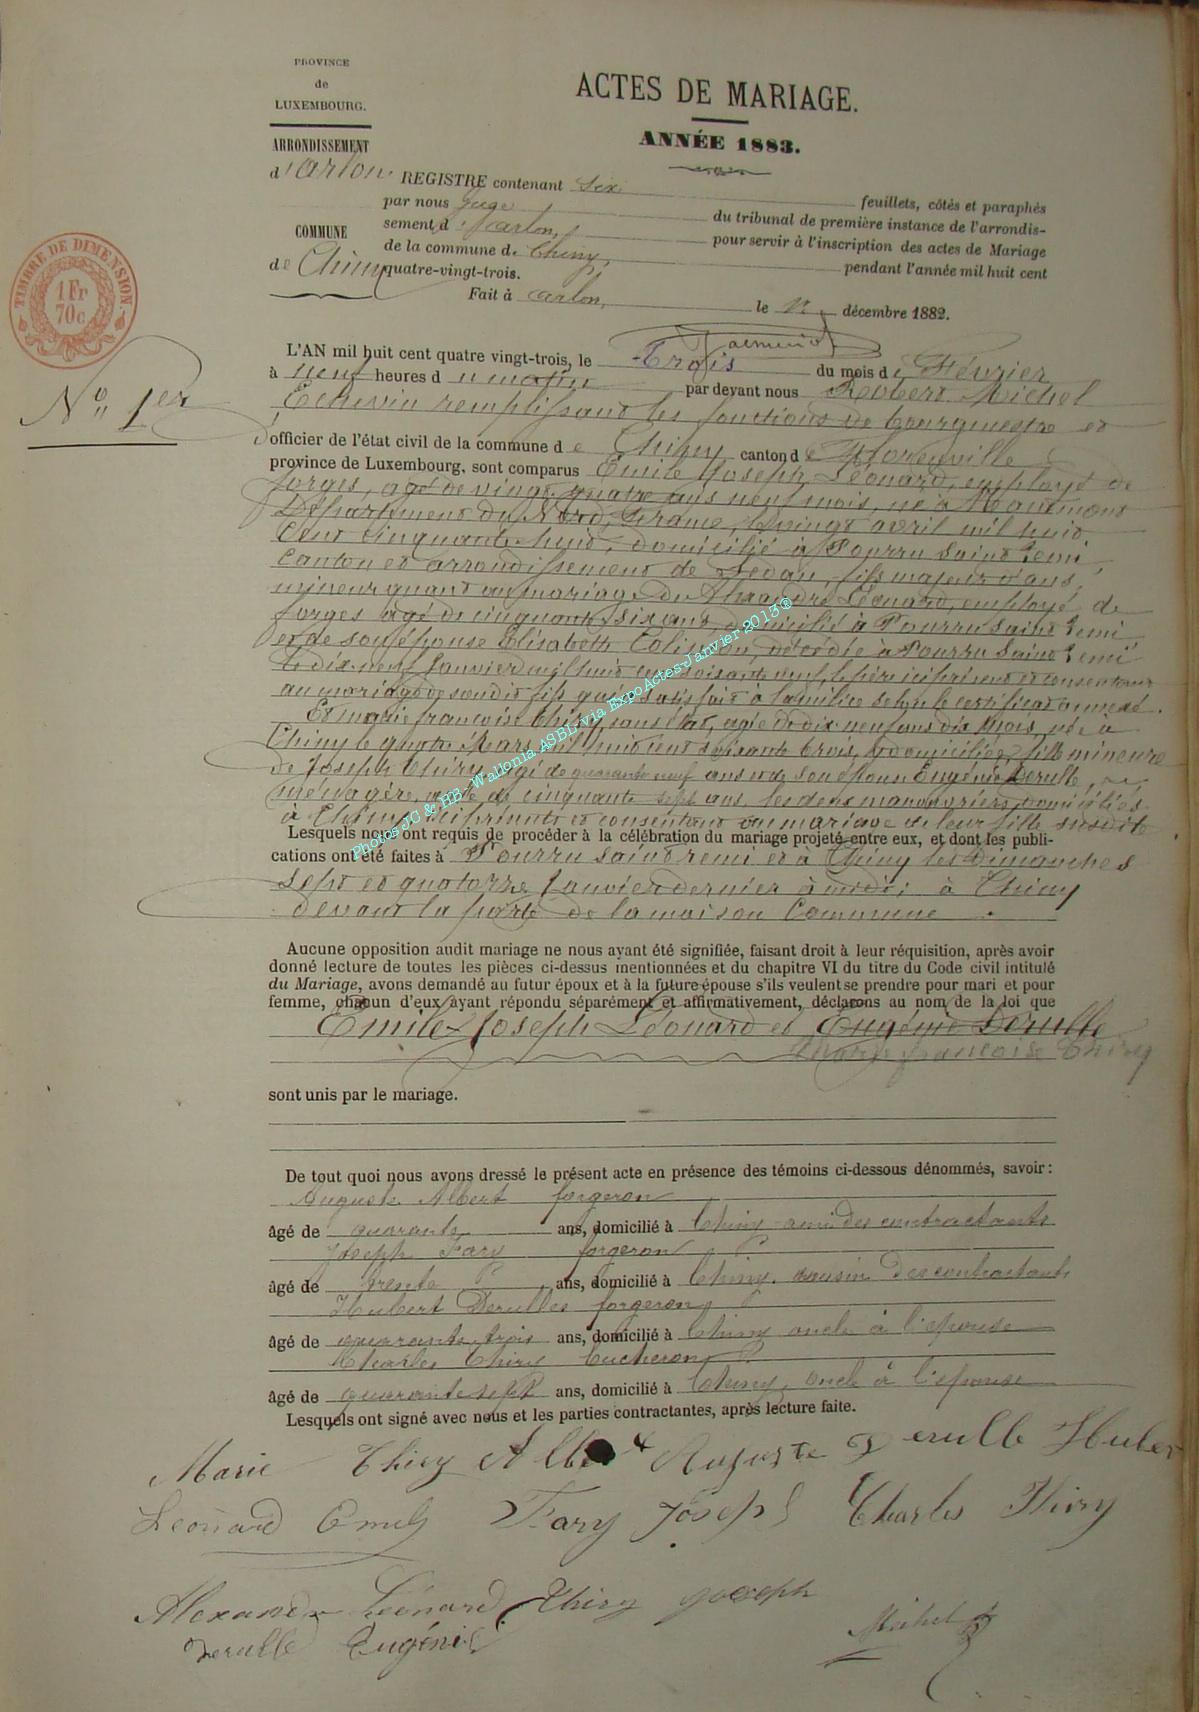 PROVINCE
de
LUXEMBOURG.
ACTES DE MARIAGE.
ANNÉE 1883.
ARRONDISSEMENT
d'Arlon
REGISTRE contenant Six feuillets, côtés et paraphés
par nous Juge du tribunal de première instance de l'arrondis-
sement d'Arlon, pour servir à l'inscription des actes de Mariage
COMMUNE
de Chiny
de la commune de Chiny, pendant l'année mil huit cent
quatre-vingt-trois.
Fait à Arlon, le décembre 1882.
TIMBRE DE DIMENSION.
1 Fr
70c
No 1er
L'AN mil huit cent quatre vingt-trois, le Trois du mois de Février
à neuf heures du matin par devant nous Robert Michel
Echevin remplissant les fonctions de bourgmestre et
d'officier de l'état civil de la commune de Chiny canton de Florenville
province de Luxembourg, sont comparus Emile Joseph Léonard, employé de
forges, agé de vingt quatre ans neuf mois, né à Hautmont
Département du Nord, France, le vingt avril mil huit
cent cinquante huit, domicilié à Pourru Saint Remi
canton et arrondissement de Sedan, fils majeur d'ans,
mineur quant au mariage de Alexandre Léonard, employé de
forges agé de cinquante six ans, domicilié à Pourru Saint Remi
et de son épouse Elisabeth décédée à Pourru Saint Remi
le dix neuf Janvier mil huit cent soixante neuf, le père ici présent et consentant
au mariage de son dit fils qui a satisfait à la milice selon le certificat annexé.
Et marie françoise Thiry, sans état, agée de dix neuf ans dix mois, née à
Chiny le quatre Mars mil huit cent soixante trois, y domiciliée, fille mineure
de Joseph Thiry agé de quarante neuf ans et de son épouse Eugénie Derulle,
ménagère, agée de cinquante sept ans, les deux manouvriers domiciliés
à Chiny ici présents et consentant au mariage de leur fille susdite
Lesquels nous ont requis de procéder à la célébration du mariage projeté entre eux, et dont les publi-
cations ont été faites à Pourru saint remi et à Chiny les Dimanches
sept et quatorze Janvier dernier à midi à Chiny
devant la porte de la maison Commune.
Aucune opposition audit mariage ne nous ayant été signifiée, faisant droit à leur réquisition, après avoir
donné lecture de toutes les pièces ci-dessus mentionnées et du chapitre VI du titre du Code civil intitulé
du Mariage, avons demandé au futur époux et à la future épouse s'ils veulent se prendre pour mari et pour
femme, chacun d'eux ayant répondu séparément et affirmativement, déclarons au nom de la loi que
Emile Joseph Léonard et Eugénie Derulle
Marie françoise Thiry
sont unis par le mariage.
De tout quoi nous avons dressé le présent acte en présence des témoins ci-dessous dénommés, savoir:
Auguste Albert forgeron
âgé de quarante ans, domicilié à Chiny ami des contractants
Joseph Fary forgeron
âgé de trente ans, domicilié à Chiny cousin des contractants
Hubert Derulles forgeron
âgé de quarante trois ans, domicilié à Chiny oncle à l'épouse
Charles Thiry bucheron
âgé de quarante sept ans, domicilié à Chiny, oncle à l'épouse
Lesquels ont signé avec nous et les parties contractantes, après lecture faite.
Marie Thiry Albert Auguste Derulle Huber
Leonard Emile Fary Joseph Charles Thiry
Alexandre Léonard Thiry Joseph
Derulle Eugénie Michel R
Photos JC & HB - Wallonia ASBL via ExpoActes Janvier 2013®